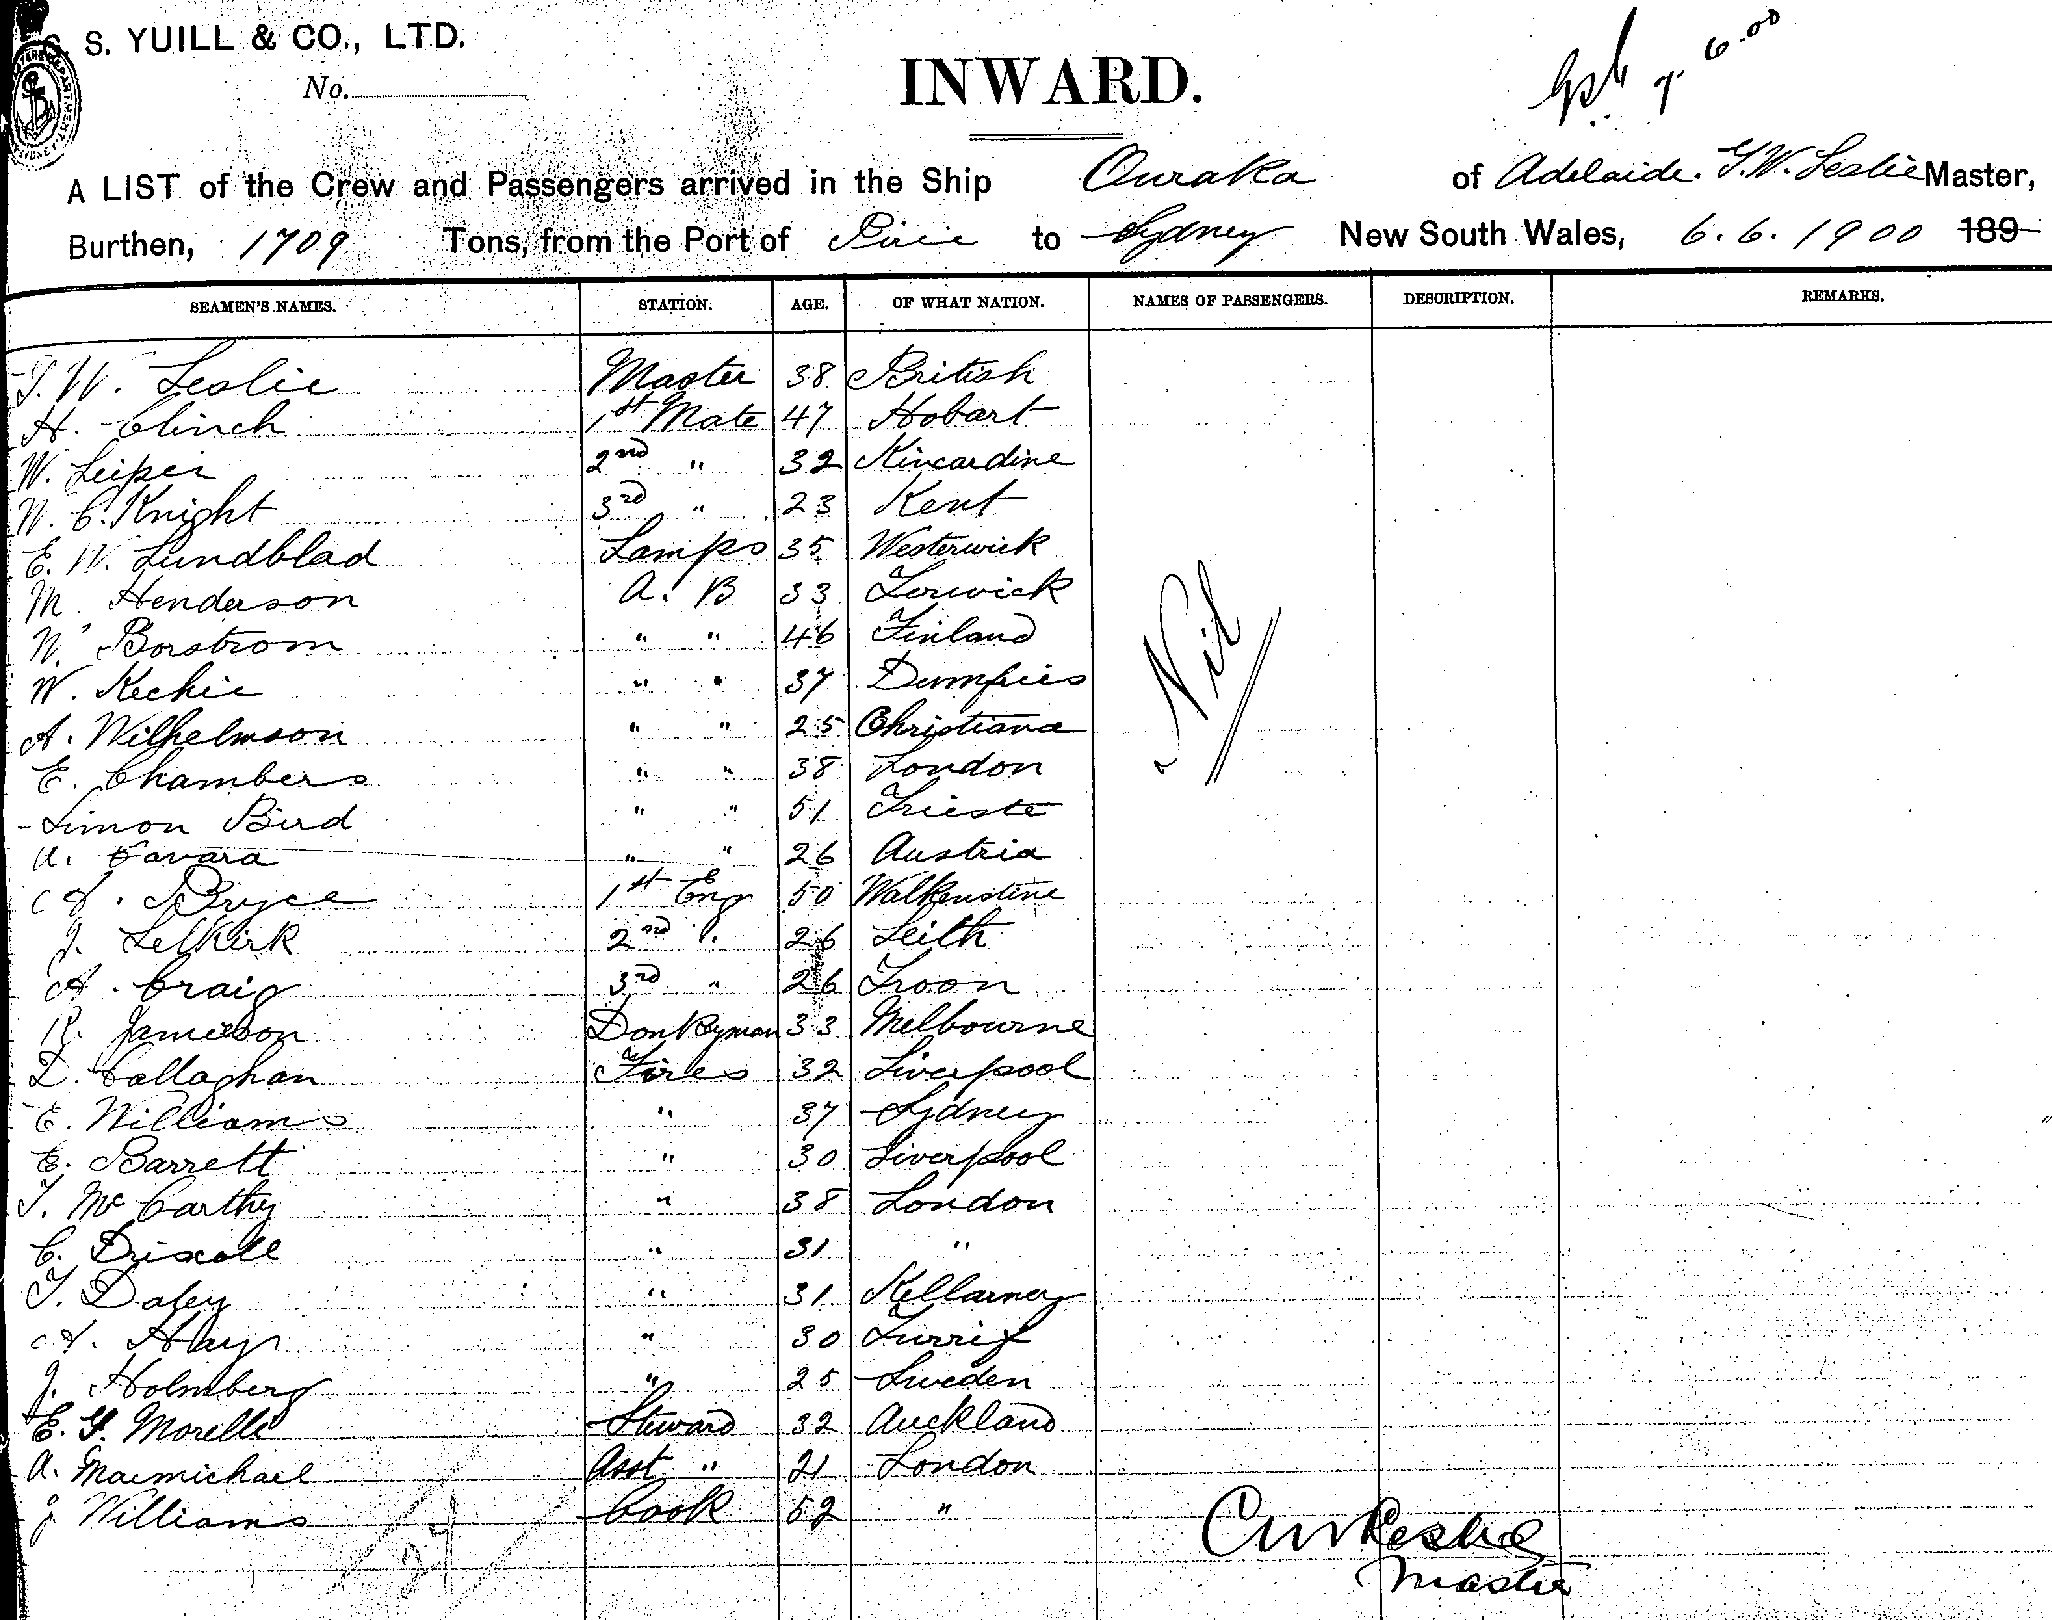 S. YUILL & CO., LTD.
No.
INWARD.
7. 6.00
A LIST of the Crew and Passengers arrived in the Ship Ouraka of Adelaide. T.W. Leslie Master,
Burthen, 1709 Tons, from the Port of Pirie to Sydney New South Wales, 6.6.1900 189
SEAMEN'S NAMES. STATION. AGE. OF WHAT NATION. NAMES OF PASSENGERS. DESCRIPTION. REMARKS.
T. W. Leslie Master 38 British
H. Clinch 1st Mate 47 Hobart
W. Leiper 2nd " 32 Kincardine
W. C. Knight 3rd " 23 Kent
E. W. Lundblad Lamps 35 Westerwick
M. Henderson A. B 33 Lerwick
N. Borstrom " " 46 Finland
W. Kechie " " 37 Dumfries
A. Wilhelmson " " 25 Christiana
E. Chambers " " 38 London
Simon Bird " " 51 Trieste
A. Cavara " " 26 Austria
A. Bryce 1st Eng 50 Walkenstine
J. Selkirk 2nd " 26 Leith
A. Craig 3rd " 26 Troon
R. Jameson Donkeyman 33 Melbourne
D. Callaghan Fires 32 Liverpool
E. Williams " 37 Sydney
E. Barrett " 30 Liverpool
T. McCarthy " 38 London
C. Driscoll " 31 "
T. Daley " 31 Kellarney
A. Hay " 30 Turrif
J. Holmberg " 25 Sweden
E. G. Morelle Steward 32 Auckland
A. Macmichael Asst " 21 London
J Williams Cook 52 "
Nil
Leslie
Master